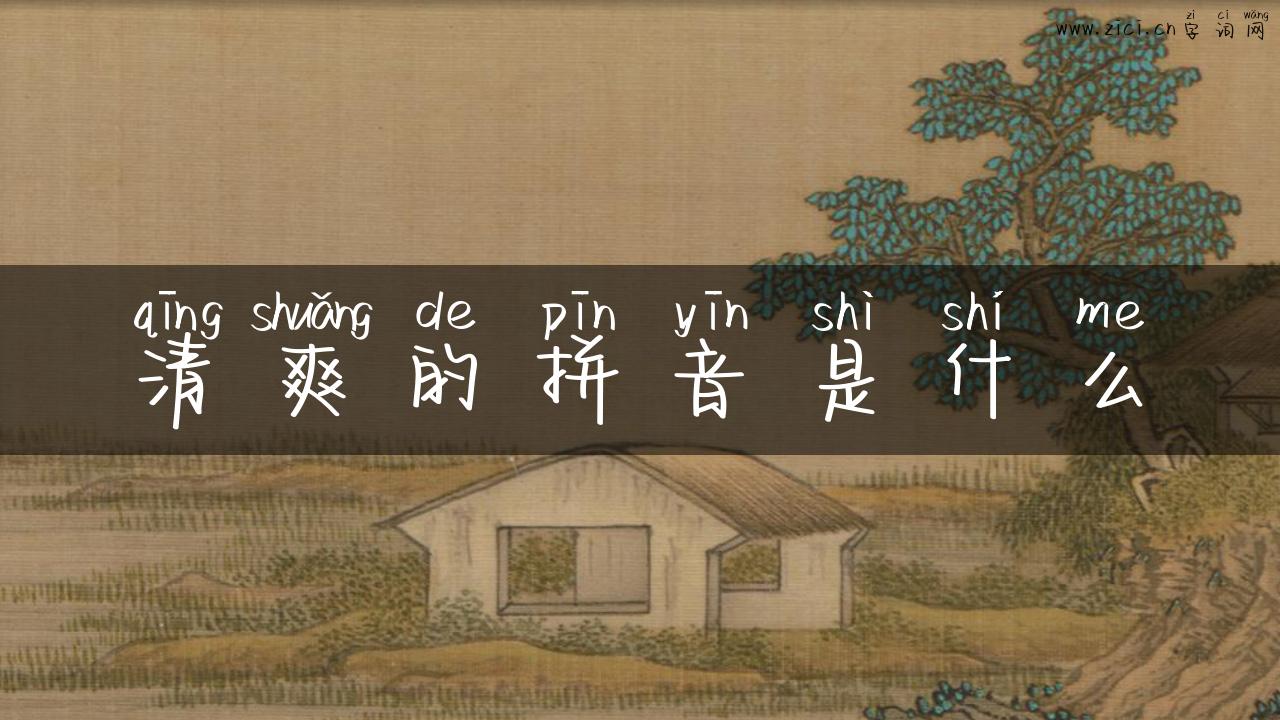 zì cí wǎng
www.zici.cn 字词网
qīng shuǎng de pīn yīn shì shí me
清爽的拼音是什么